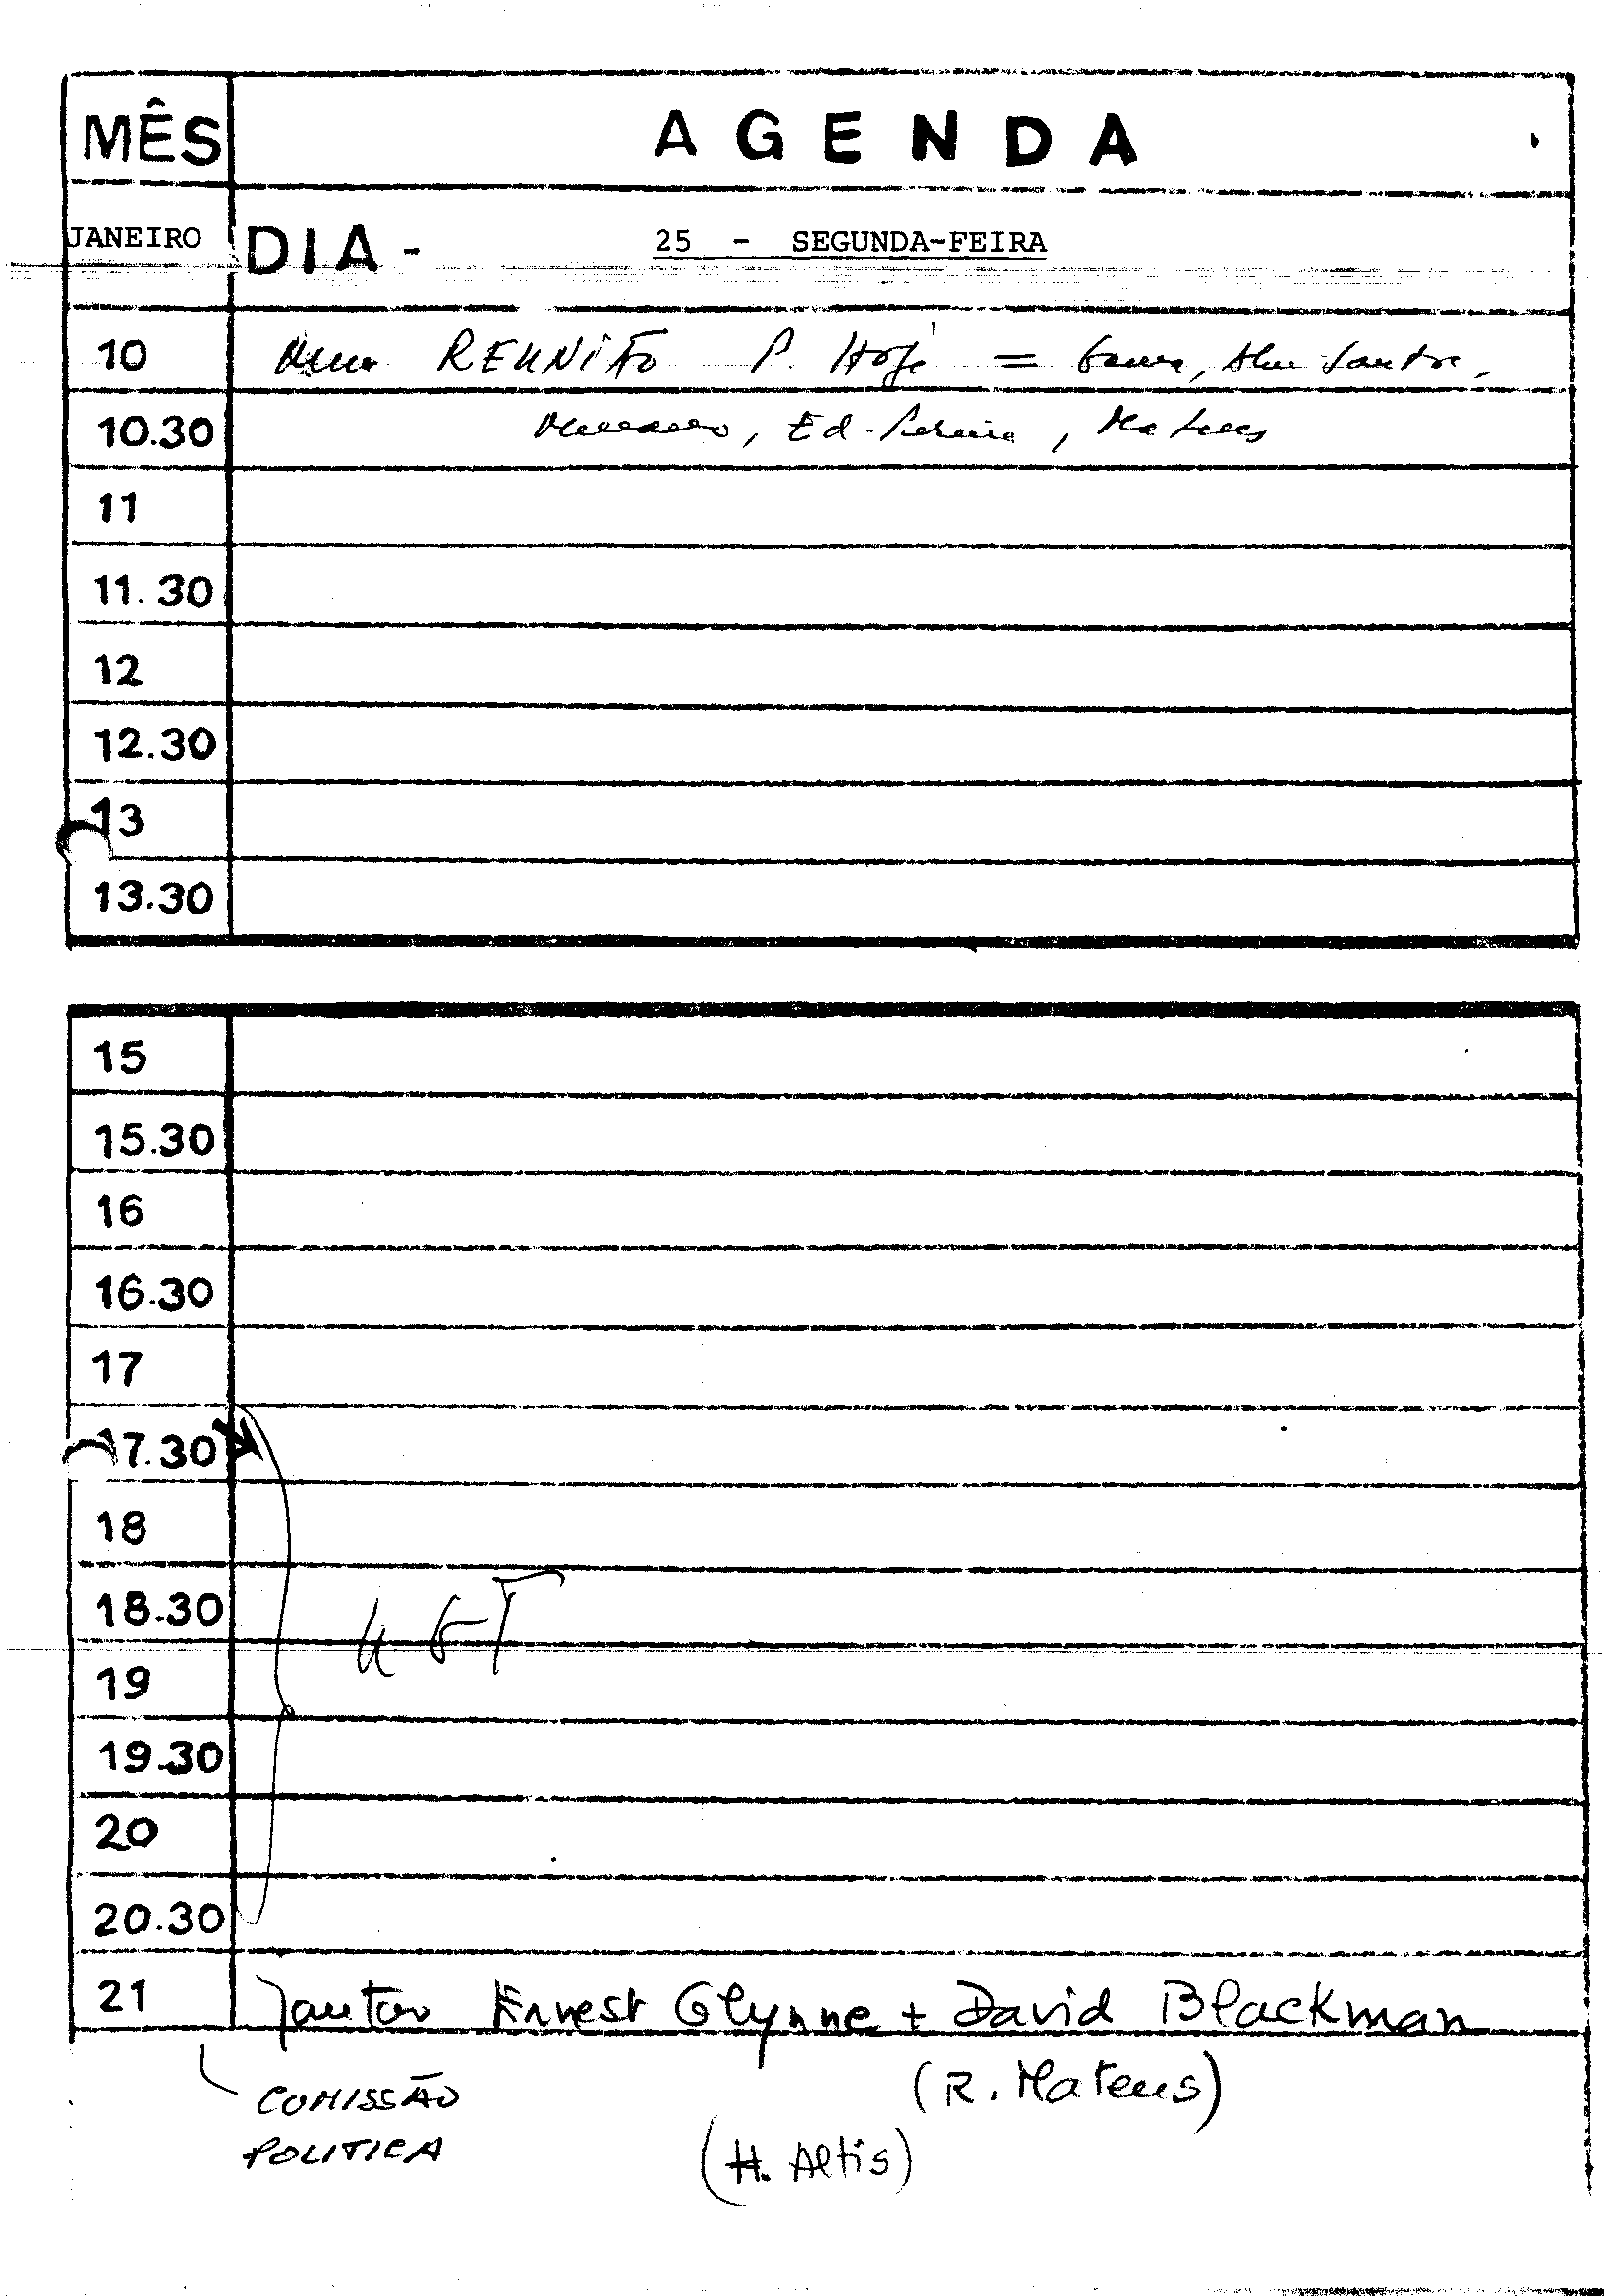 MÊS AGENDA
JANEIRO DIA - 25 - SEGUNDA-FEIRA
10 REUNIÃO P. =
10.30 , Ed. Pereira, Mateus
11
11.30
12
12.30
13
13.30
15
15.30
16
16.30
17
17.30
18
18.30 UGT
19
19.30
20
20.30
21 Jantar Ernest Glynne + David Blackman
(R. Mateus)
COMISSÃO
POLITICA
(H. Altis)